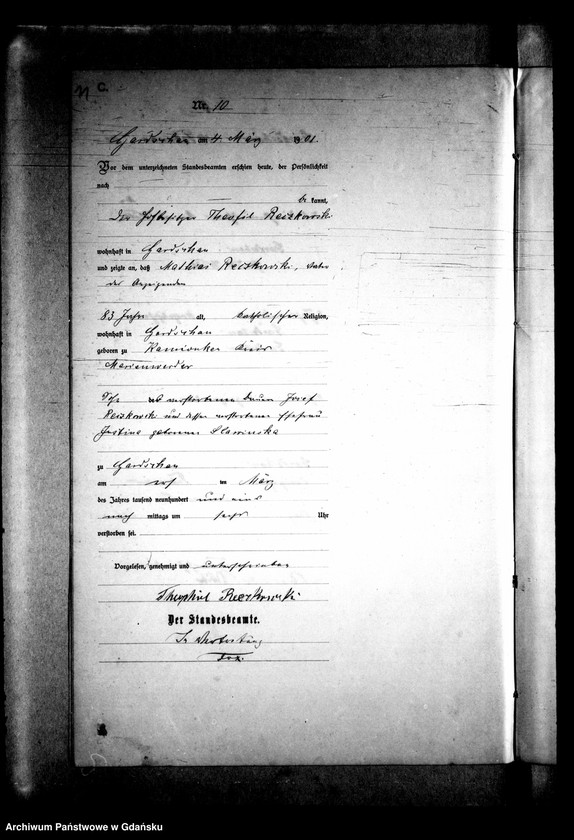 C.
Nr. 10
Gardschau am 4 März 1901.
Vor dem unterzeichneten Standesbeamten erschien heute, der Persönlichkeit
nach
be kannt,
Der Hofbesitzer Theofil Reszkowski
wohnhaft in Gardschau
und zeigte an, daß Mathias Reszkowski, Vater
des Anzeigenden
83 Jahre alt, katholischer Religion,
wohnhaft in Gardschau
geboren zu Kamionken Kreis
Marienwerder
Sohn des verstorbenen Bauern Josef
Reszkowski und dessen verstorbene Ehefrau
Justine geborene Slawinska
zu Gardschau
am ten März
des Jahres tausend neunhundert und eins
nach mittags um sechs Uhr
verstorben sei.
Vorgelesen, genehmigt und unterschrieben
Theophil Reszkowski
Der Standesbeamte.
In Vertretung
Archiwum Państwowe w Gdańsku